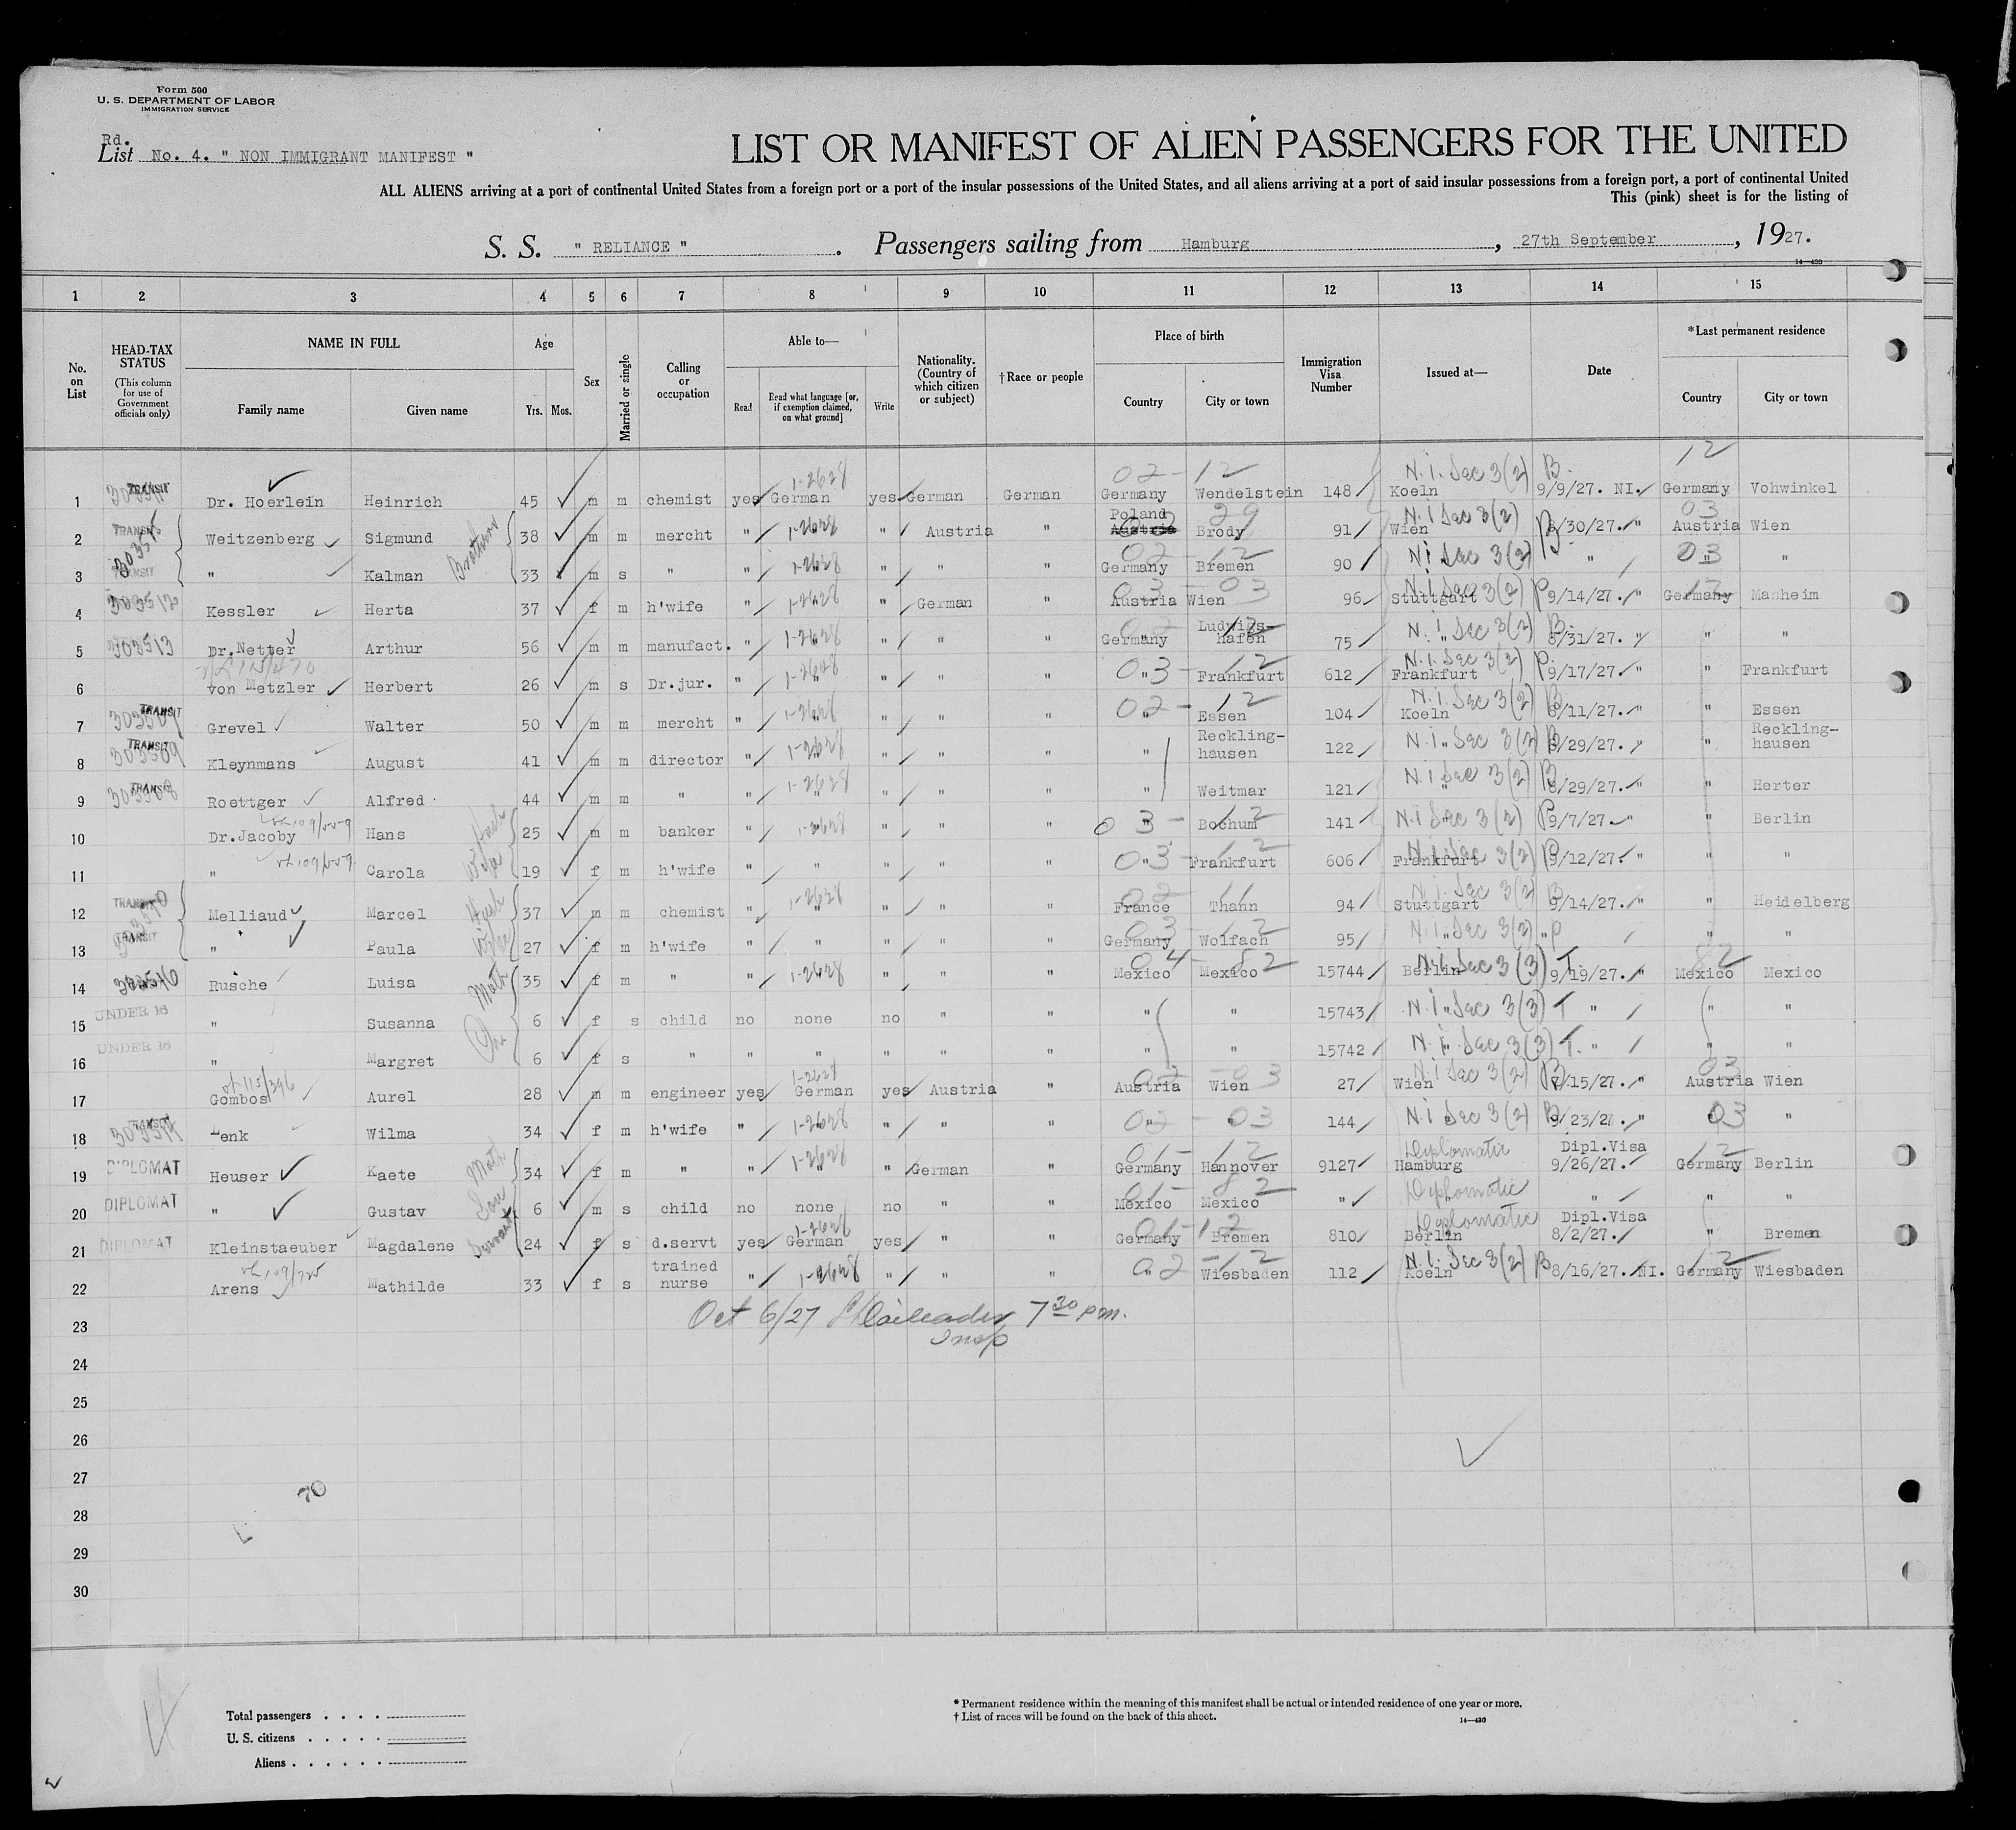 Form 500
U. S. DEPARTMENT OF LABOR
IMMIGRATION SERVICE
Rd.
List No. 4. " NON IMMIGRANT MANIFEST "
LIST OR MANIFEST OF ALIEN PASSENGERS FOR THE UNITED
ALL ALIENS arriving at a port of continental United States from a foreign port or a port of the insular possessions of the United States, and all aliens arriving at a port of said insular possessions from a foreign port, a port of continental United
This (pink) sheet is for the listing of
S. S. " RELIANCE ". Passengers sailing from Hamburg, 27th September, 1927.
14—430
1 2 3 4 5 6 7 8 9 10 11 12 13 14 15
No. on List
HEAD-TAX STATUS (This column for use of Government officials only)
NAME IN FULL Family name Given name
Age Yrs. Mos.
Sex
Married or single
Calling or occupation
Able to— Read Read what language [or, if exemption claimed, on what ground] Write
Nationality. (Country of which citizen or subject)
†Race or people
Place of birth Country City or town
Immigration Visa Number
Issued at—
Date
*Last permanent residence Country City or town
1 TRANSIT Dr. Hoerlein Heinrich 45 m m chemist yes 1-2628 German yes German German 02-12 Germany Wendelstein 148 N.I. Sec 3(2) Koeln B 9/9/27. NI. 12 Germany Vohwinkel
2 TRANSIT Weitzenberg Sigmund Brothers 38 m m mercht " 1-2628 " Austria " Poland Austria Brody 91 N.I Sec 3(2) Wien 8/30/27. " 03 Austria Wien
3 TRANSIT " Kalman 33 m s " " 1-2628 " " " 02-12 Germany Bremen 90 N.I Sec 3(2) B " 03 " "
4 303512 Kessler Herta 37 f m h'wife " 1-2628 " German " 03-03 Austria Wien 96 N.I Sec 3(2) Stuttgart P 9/14/27. " 12 Germany Manheim
5 303513 Dr.Netter Arthur 56 m m manufact. " 1-2628 " " " Germany Ludwigs-hafen 75 N.I Sec 3(2) " B 8/31/27. " " "
6 von Metzler Herbert 26 m s Dr.jur. " 1-2628 " " " 03-12 " Frankfurt 612 N.I. Sec 3(2) Frankfurt P 9/17/27. " " Frankfurt
7 TRANSIT Grevel Walter 50 m m mercht " 1-2628 " " " 02-12 " Essen 104 N.I. Sec 3(2) Koeln B 8/11/27. " " Essen
8 TRANSIT 303509 Kleynmans August 41 m m director " 1-2628 " " " " Reckling-hausen 122 N.I. Sec 3(2) " B 8/29/27. " " Reckling-hausen
9 TRANSIT 303508 Roettger Alfred 44 m m " " 1-2628 " " " " Weitmar 121 N.I Sec 3(2) " B 8/29/27. " " Herter
10 Dr.Jacoby Hans Husb 25 m m banker " 1-2628 " " " 03-12 " Bochum 141 N.I Sec 3(2) " P 9/7/27. " " Berlin
11 " Carola Wife 19 f m h'wife " " " " 03-12 " Frankfurt 606 N.I. Sec 3(2) Frankfurt P 9/12/27. " " "
12 TRANSIT Melliaud Marcel Husb 37 m m chemist " 1-2628 " " " " 02-11 France Thann 94 N.I. Sec 3(2) Stuttgart B 9/14/27. " " Heidelberg
13 TRANSIT " Paula Wife 27 f m h'wife " " " " " 03-12 Germany Wolfach 95 N.I. Sec 3(2) " P " " "
14 Rusche Luisa Moth 35 f m " " 1-2628 " " " 04-82 Mexico Mexico 15744 N.I Sec 3(3) Berlin T 9/19/27. " 82 Mexico Mexico
15 UNDER 16 " Susanna Ch 6 f s child no none no " " " " 15743 N.I. Sec 3(3) T " " "
16 UNDER 16 " Margret 6 f s " " " " " " " " 15742 N.I. Sec 3(3) T. " " "
17 Gombos Aurel 28 m m engineer yes 1-2628 German yes Austria " 02-03 Austria Wien 27 N.I Sec 3(2) Wien B 15/27. " 03 Austria Wien
18 TRANSIT 303514 Wilma 34 f m h'wife " 1-2628 " " " 02-03 " " 144 N.I Sec 3(2) " B " 03 " "
19 DIPLOMAT Heuser Kaete Moth 34 f m " " 1-2628 " " German " 01-12 Germany Hannover 9127 Diplomatic Hamburg Dipl.Visa 9/26/27. 12 Germany Berlin
20 DIPLOMAT " Gustav Son 6 m s child no none no " " 01-82 Mexico Mexico " Diplomatic " " " "
21 DIPLOMAT Kleinstaeuber Magdalene Servant 24 f s d.servt yes 1-2628 German yes " " 01-12 Germany Bremen 810 Diplomatic Berlin Dipl.Visa 8/2/27. " Bremen
22 Arens Mathilde 33 f s trained nurse " 1-2628 " " " 02-12 " Wiesbaden 112 N.I. Sec 3(2) Koeln B 8/16/27. NI. 12 Germany Wiesbaden
23 Oct 6/27 7 30 pm.
Insp
24
25
26
27
28
29
30
Total passengers . . . .
U. S. citizens . . . . .
Aliens . . . . . .
* Permanent residence within the meaning of this manifest shall be actual or intended residence of one year or more.
† List of races will be found on the back of this sheet.
14—430